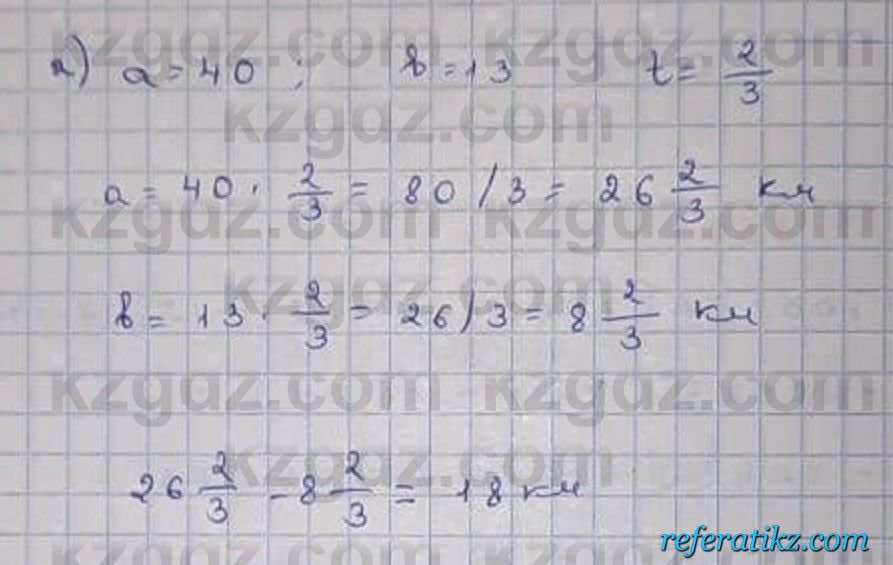 а) a = 40 ; b = 13 t = 2/3
a = 40 · 2/3 = 80 / 3 = 26 2/3 км
b = 13 · 2/3 = 26 / 3 = 8 2/3 км
26 2/3 - 8 2/3 = 18 км
kzgdz.com kzgdz.com
kzgdz.com
kzgdz.com kzgdz.com
kzgdz.com
kzgdz.com kzgdz.com
kzgdz.com
referatikz.com